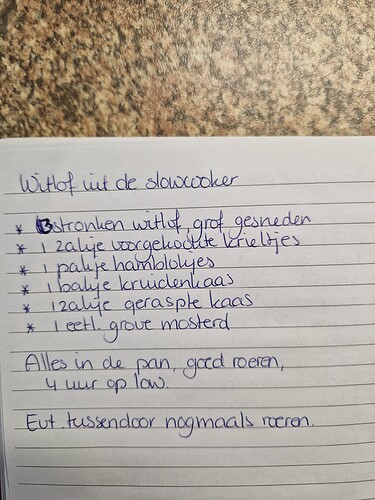 Witlof uit de slowcooker
* 3 stronken witlof, grof gesneden
* 1 zakje voorgekookte krieltjes
* 1 pakje hamblokjes
* 1 bakje kruidenkaas
* 1 zakje geraspte kaas
* 1 eetl. grove mosterd
Alles in de pan, goed roeren,
4 uur op low.
Evt. tussendoor nogmaals roeren.